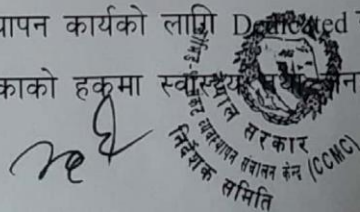 यापन कार्यको लागि Dedicated
काको हकमा स्वास्थ्य
नेपाल सरकार
व्यवस्थापन संचालन केन्द्र (CCMC)
निर्देशक समिति